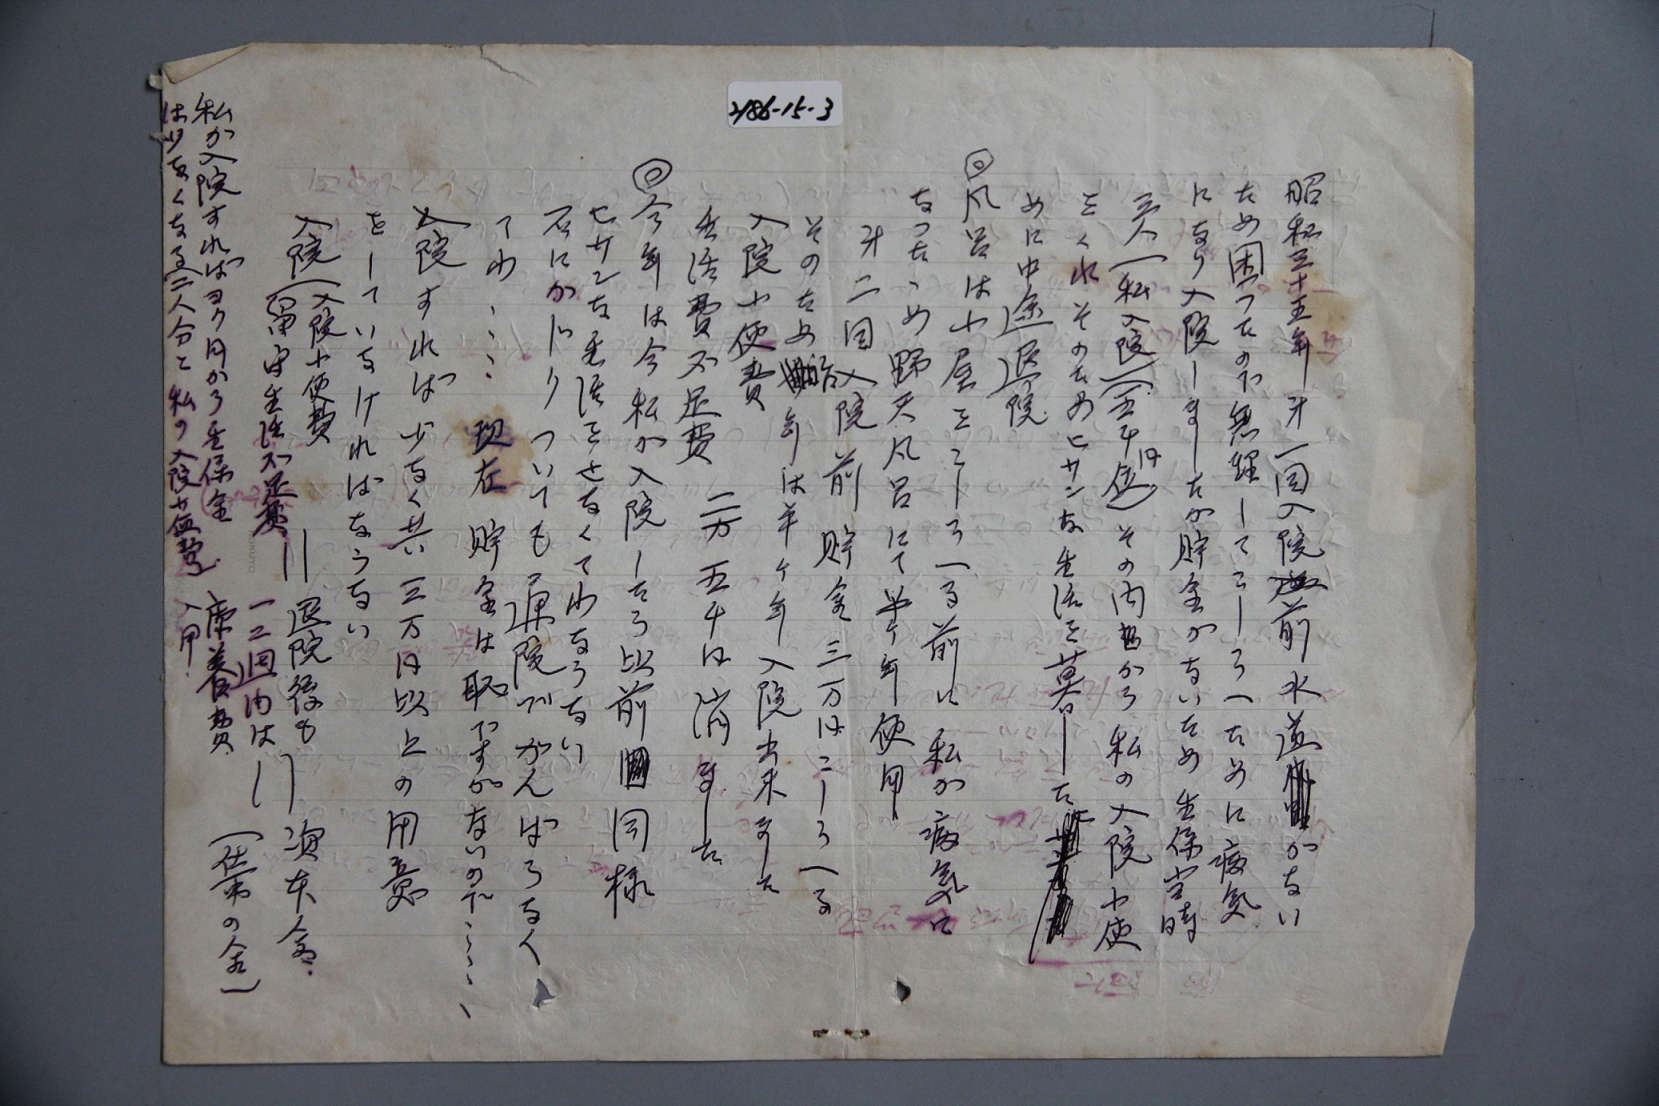 2186-15-3
昭和三十五年才一回入院前水道がない
ため困つたので無理してこしらへために病気
になり入院しましたが貯金がないため生保当時
三人(私入院)(五千円位)その内から私の入院小使
をくれそのためヒサンな生活を暮した
めに中途退院
◎風呂は小屋をこしらへる前に私が病気に
なつたゝめ野天風呂にて半ヶ年使用
才二回入院前貯金三万円こしらへる
そのため昭 年は半ヶ年入院出来ました
入院小使費
生活費不足費 二万五千円消ました
◎今年は今私が入院したら以前同様
ヒサンな生活をせなくてわならない
石にかじりついても通院でがんばらなく
てわ…… 現在貯金は恥ですがないので……
入院すれば少なく共三万円以上の用意
をしていなければならない
入院(入院小使費
(留守生活不足費
退院後も
一二週内は
療養費
入用
資本金
(仕事の金)
私が入院すればヨク月から生保金
は少なくなる二人分と私の入院